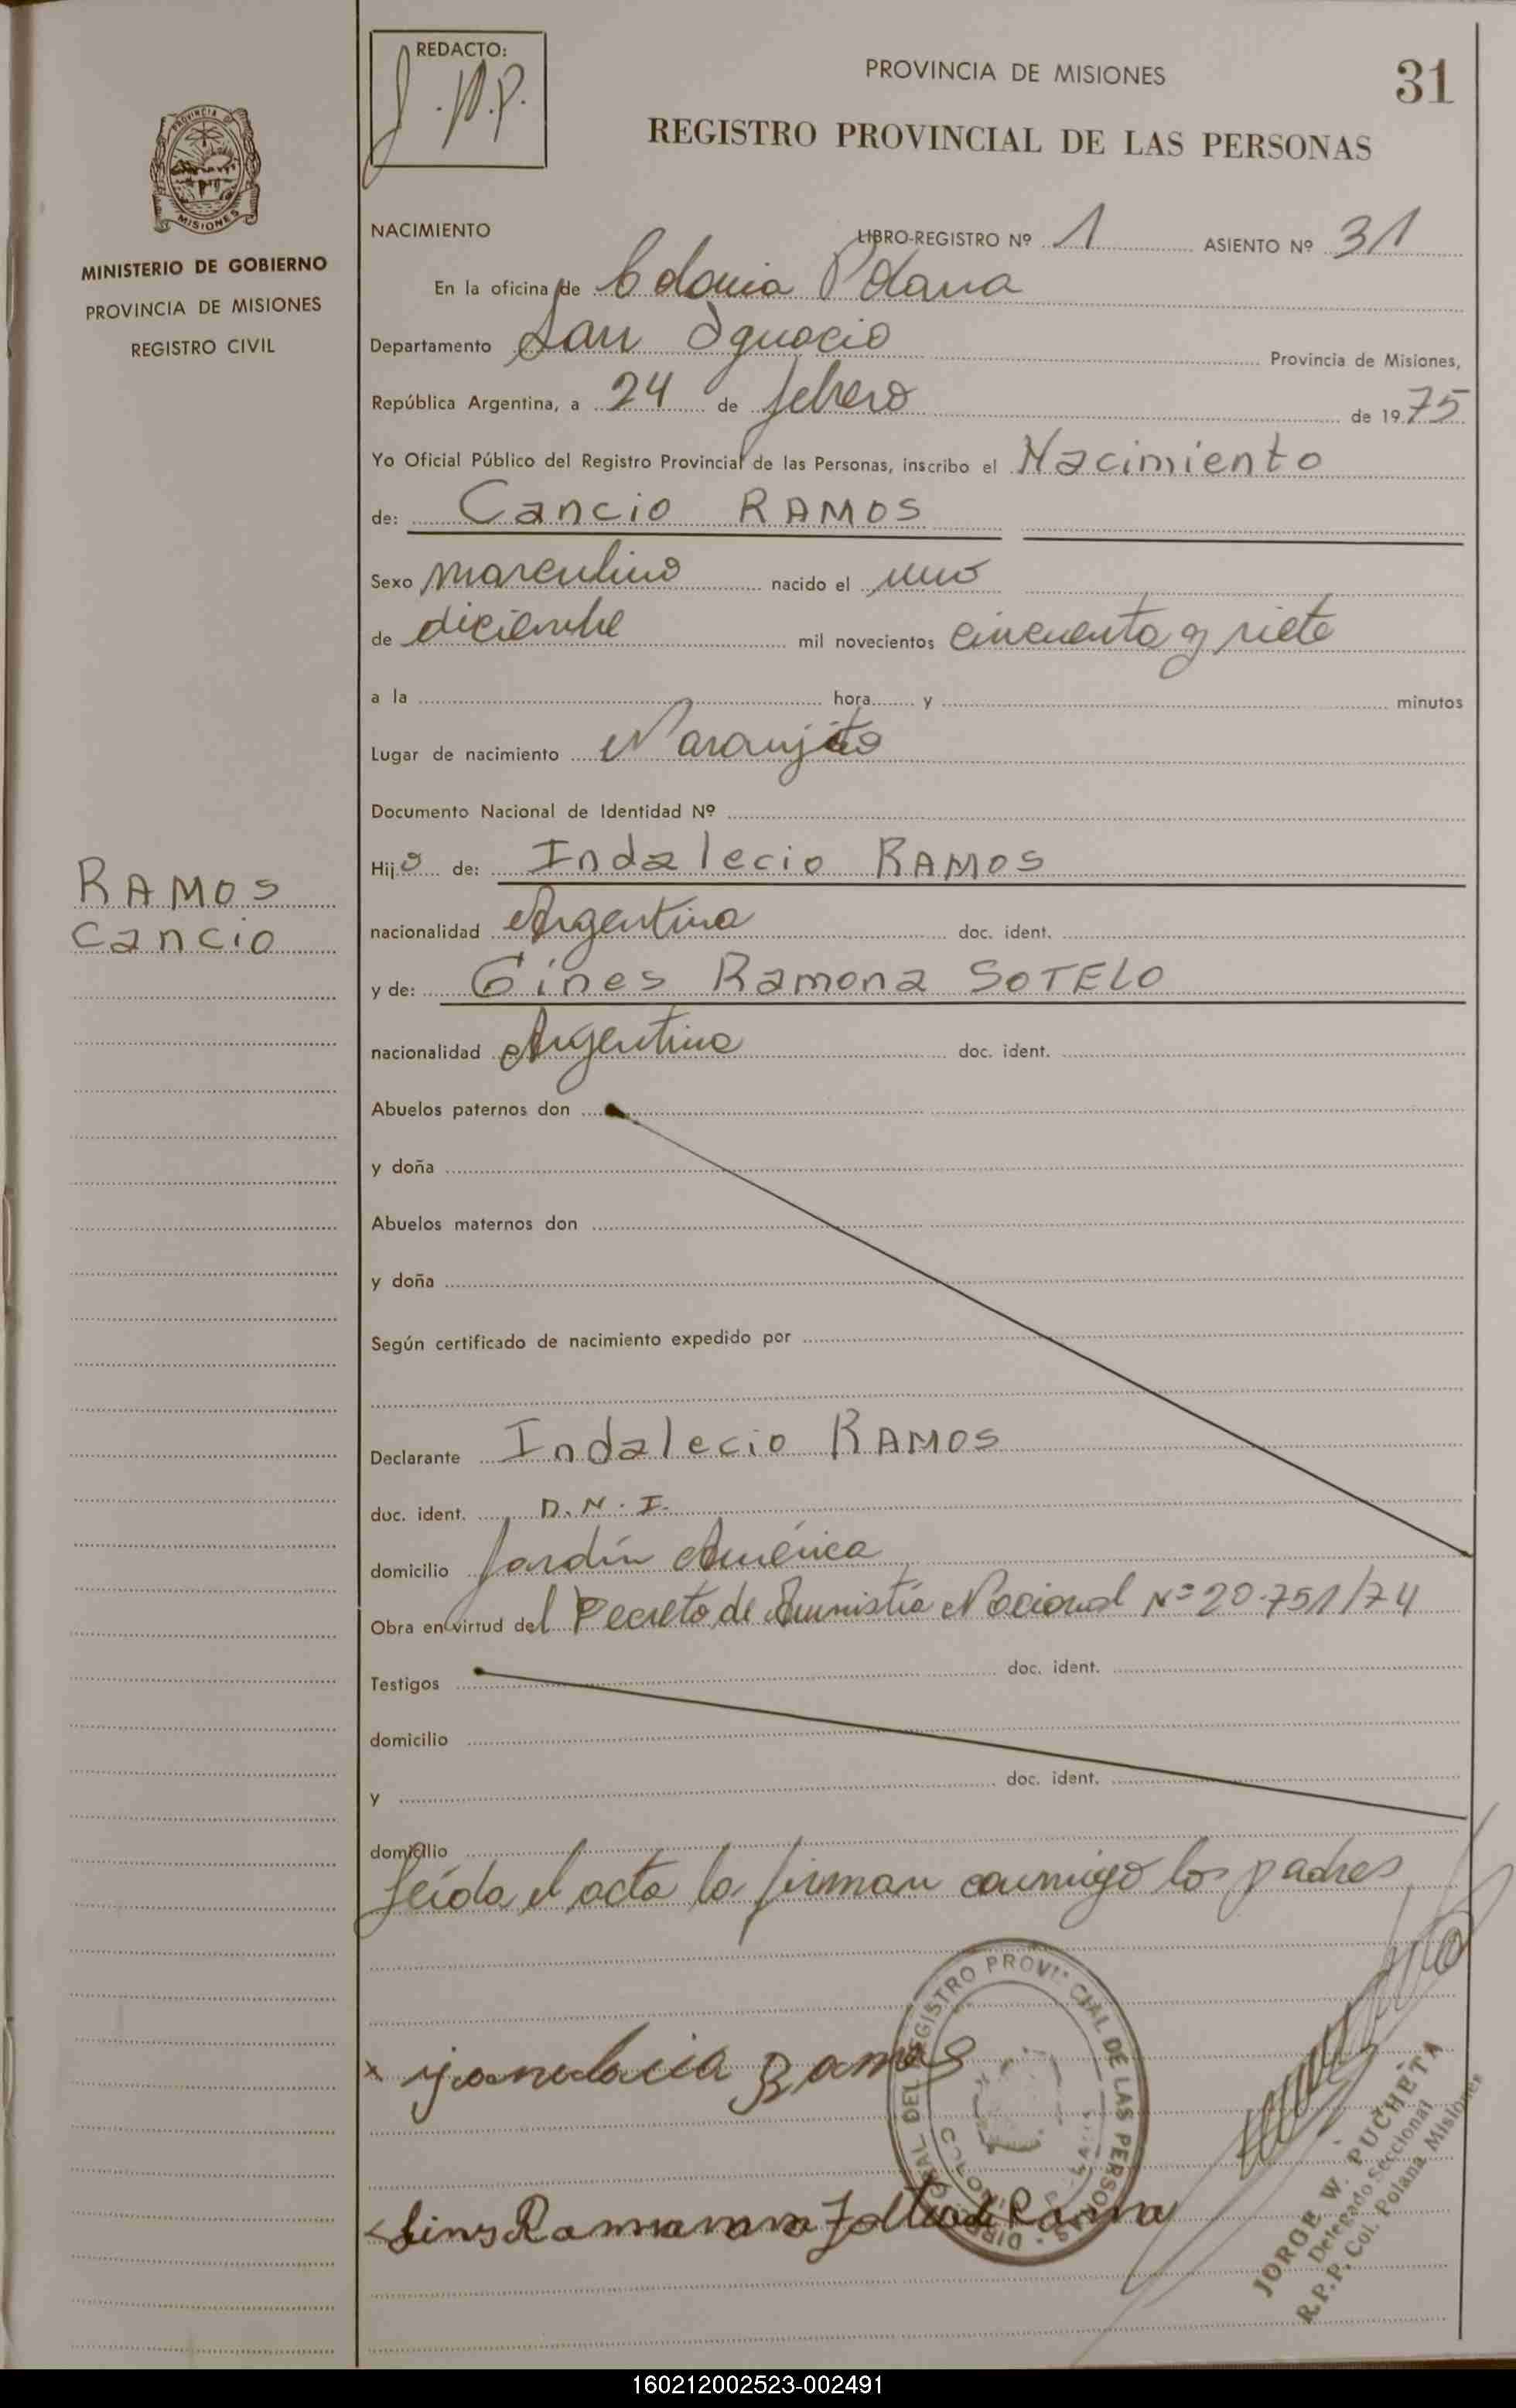 REDACTO:
J.W.P.
PROVINCIA DE MISIONES
31
REGISTRO PROVINCIAL DE LAS PERSONAS
PROVINCIA DE
MISIONES
MINISTERIO DE GOBIERNO
PROVINCIA DE MISIONES
REGISTRO CIVIL
NACIMIENTO LIBRO-REGISTRO Nº 1 ASIENTO Nº 31
En la oficina de Colonia Polana
Departamento San Ignacio Provincia de Misiones,
República Argentina, a 24 de febrero de 1975
Yo Oficial Público del Registro Provincial de las Personas, inscribo el Nacimiento
de: Cancio RAMOS
Sexo masculino nacido el uno
de diciembre mil novecientos cincuenta y siete
a la hora y minutos
Lugar de nacimiento Naranjito
Documento Nacional de Identidad Nº
Hijo de: Indalecio RAMOS
RAMOS
Cancio
nacionalidad Argentina doc. ident.
y de: Gines Ramona SOTELO
nacionalidad Argentina doc. ident.
Abuelos paternos don
y doña
Abuelos maternos don
y doña
Según certificado de nacimiento expedido por
Declarante Indalecio RAMOS
doc. ident. D.N.I.
domicilio Jardín América
Obra en virtud del Decreto de Amnistía Nacional Nº 20.751/74
Testigos doc. ident.
domicilio
y doc. ident.
domicilio
Leída el acta la firman conmigo los padres
DEL REGISTRO PROVINCIAL DE LAS PERSONAS
Ramos
Ramona
JORGE W. PUCHETA
Delegado Seccional
R.P.P. Col. Polana Misiones
160212002523-002491